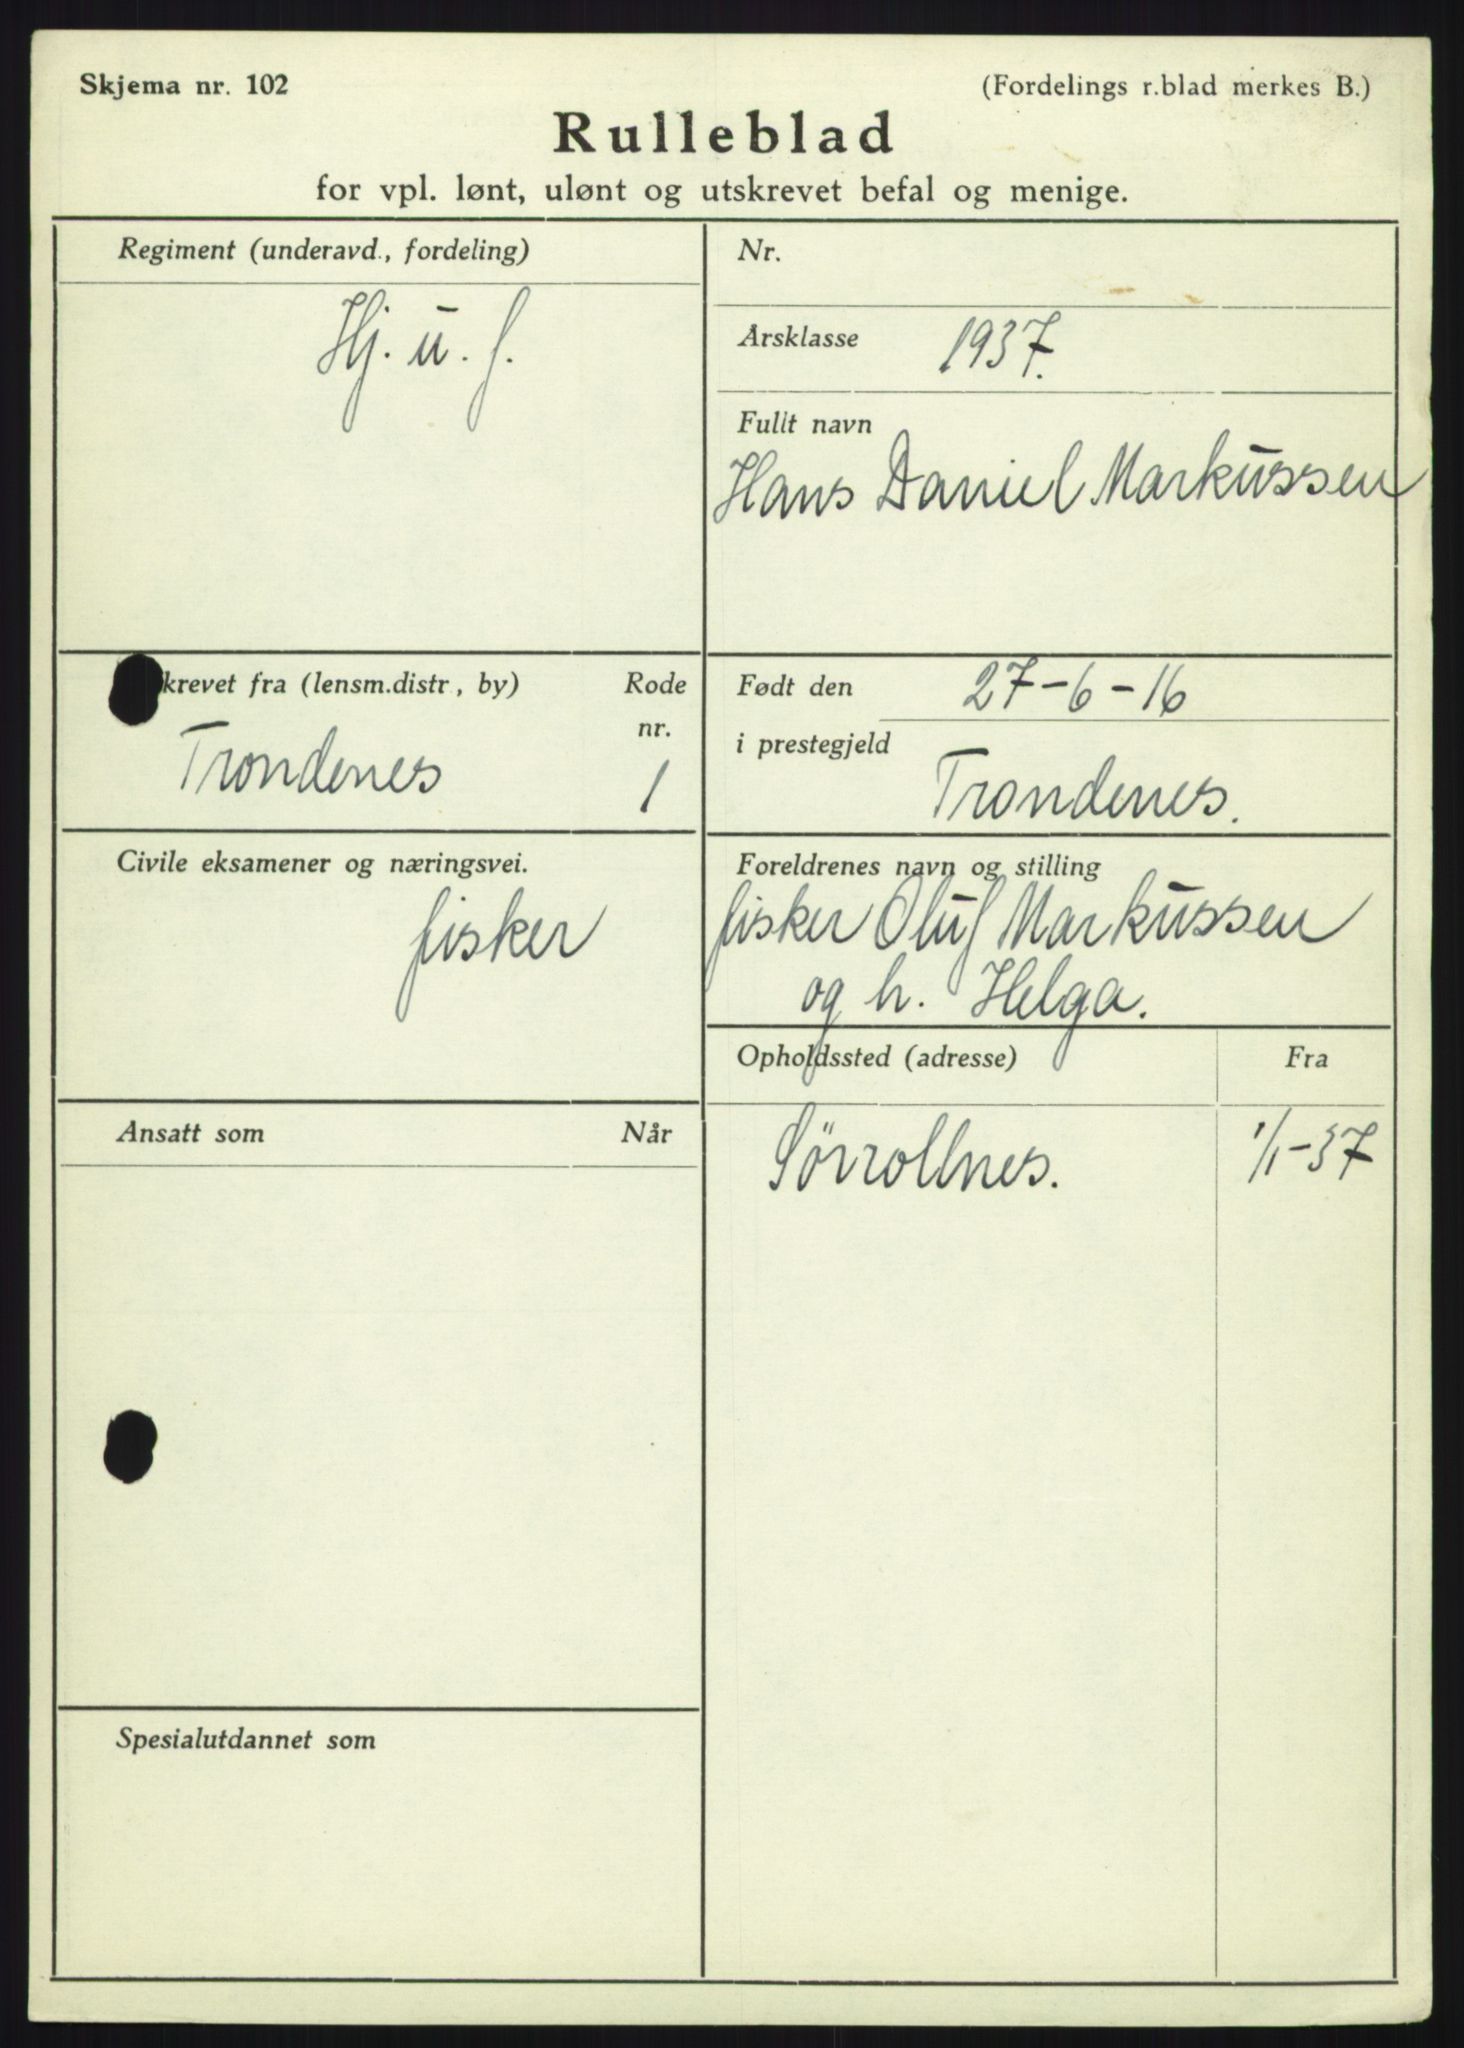 Skjema nr. 102
(Fordelings r.blad merkes B.)
Rulleblad
for vpl. lønt, ulønt og utskrevet befal og menige.
Regiment (underavd., fordeling)
Hj. u. f.
Nr.
Årsklasse 1937.
Fullt navn
Hans Daniel Markussen
krevet fra (lensm.distr, by)
Rode
nr.
Trondenes
1
Født den 27-6-16
i prestegjeld
Trondenes.
Civile eksamener og næringsvei.
fisker
Foreldrenes navn og stilling
fisker Oluf Markussen
og h. Helga.
Opholdssted (adresse)
Fra
Sörrollnes.
1/1-37
Ansatt som
Når
Spesialutdannet som